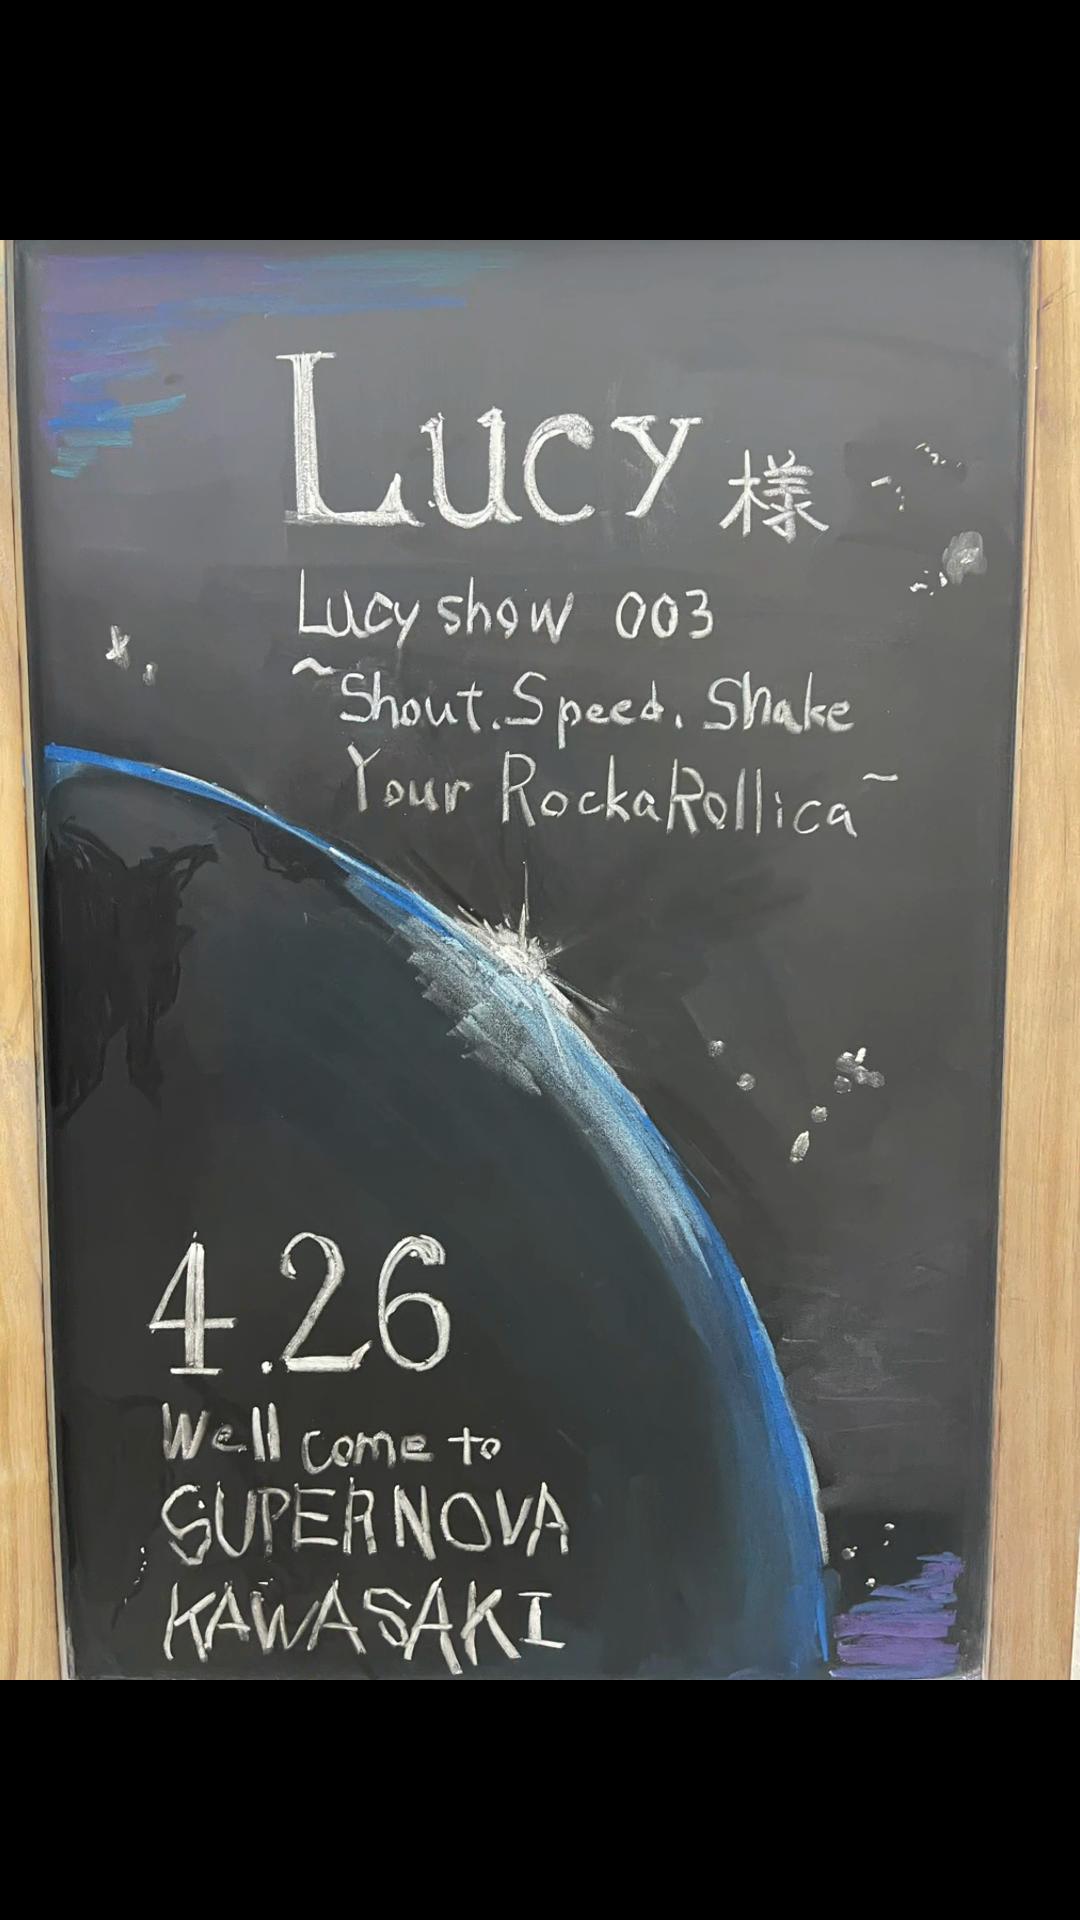 Lucy 様
Lucy show 003
~Shout. Speed. Shake
Your RockaRollica~
4.26
Well come to
SUPERNOVA
KAWASAKI